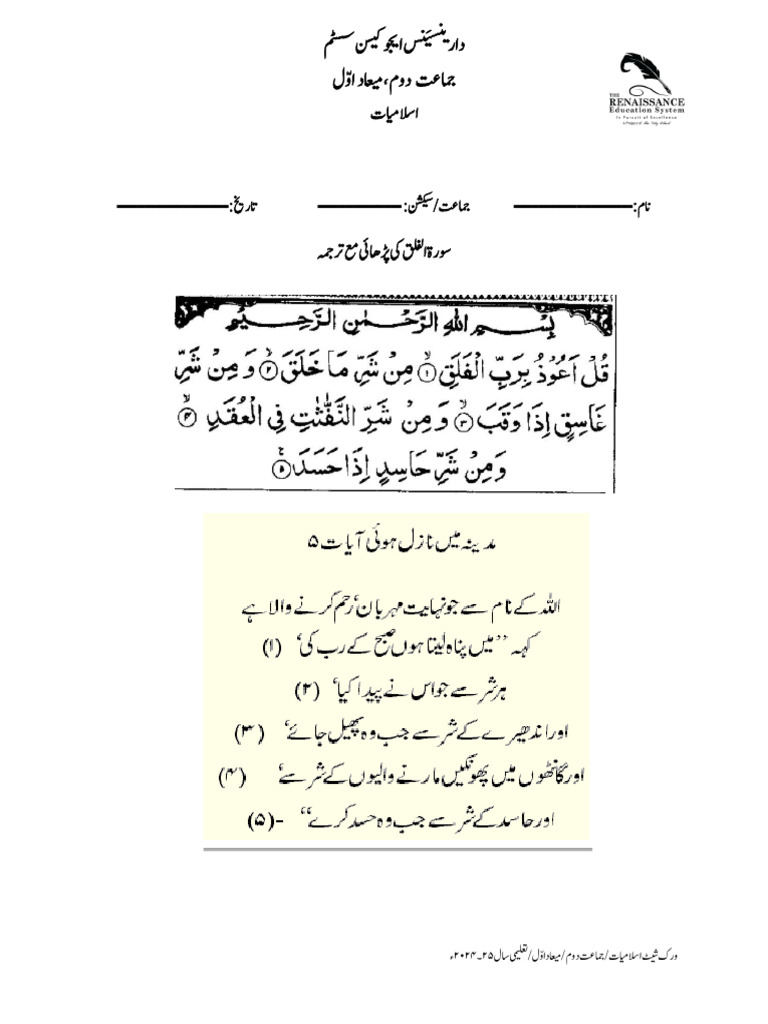 دا رینسیئنس ایجو کیسن سسٹم
جماعت دوم، میعاد اوّل
اسلامیات
THE
RENAISSANCE
Education System
In Pursuit of Excellence
نام: ــــــــــ جماعت/سیکشن: ــــــــــ تاریخ: ــــــــــ
سورۃ الفلق کی پڑھائی مع ترجمہ
بِسْمِ اللهِ الرَّحْمٰنِ الرَّحِيْمِ
قُلْ اَعُوْذُ بِرَبِّ الْفَلَقِ ۙ﴿۱﴾ مِنْ شَرِّ مَا خَلَقَ ۙ﴿۲﴾ وَ مِنْ شَرِّ
غَاسِقٍ اِذَا وَقَبَ ۙ﴿۳﴾ وَ مِنْ شَرِّ النَّفّٰثٰتِ فِي الْعُقَدِ ۙ﴿۴﴾
وَ مِنْ شَرِّ حَاسِدٍ اِذَا حَسَدَ ﴿۵﴾
مدینہ میں نازل ہوئی آیات ۵
اللہ کے نام سے جو نہایت مہربان‘ رحم کرنے والا ہے
کہہ ’’میں پناہ لیتا ہوں صبح کے رب کی‘ (۱)
ہر شر سے جو اس نے پیدا کیا‘ (۲)
اور اندھیرے کے شر سے جب وہ پھیل جائے‘ (۳)
اور گانٹھوں میں پھونکیں مارنے والیوں کے شر سے‘ (۴)
اور حاسد کے شر سے جب وہ حسد کرے‘‘ -(۵)
ورک شیٹ اسلامیات/ جماعت دوم/ میعاد اوّل/ تعلیمی سال ۲۵۔۲۰۲۴ء